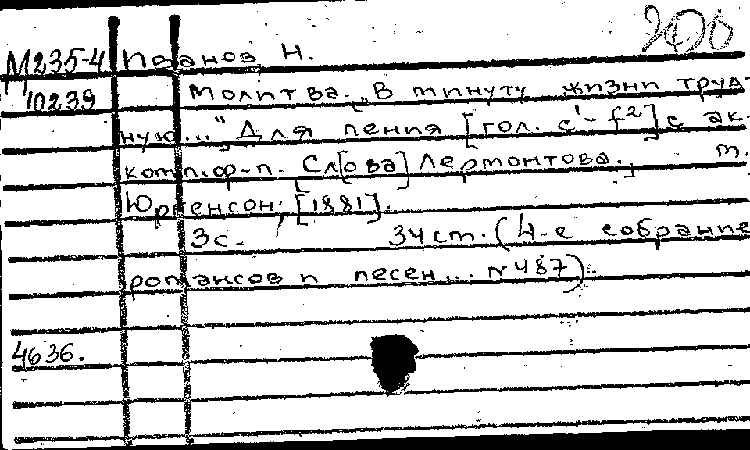 М235-4 Иванов Н.
10239 Молитва. „В минуту жизни труд-
ную...“ Для пения [гол. c¹-f²] с ак-
комп. ф-п. Сл[ова] Лермонтова. М.,
Юргенсон, [1881].
3с. 34см. (4-е собрание
романсов и песен... №487)
4636.